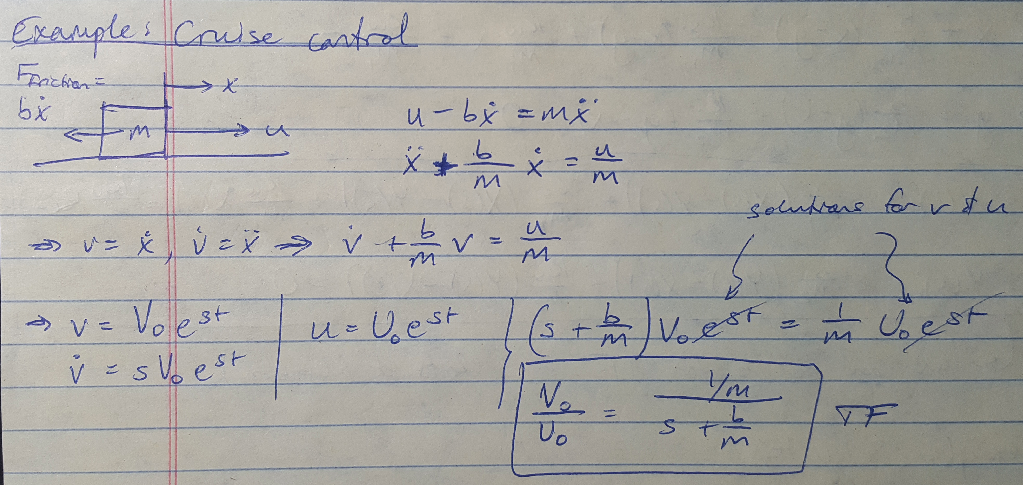 Example: Cruise control
Friction =
bẋ
x
m
u
u - bẋ = mẍ
ẍ + b/m ẋ = u/m
solutions for v & u
⇒ v = ẋ, v̇ = ẍ ⇒ v̇ + b/m v = u/m
⇒ v = V₀ e^st | u = U₀ e^st } (s + b/m) V₀ e^st = 1/m U₀ e^st
v̇ = s V₀ e^st
V₀/U₀ = (1/m)/(s + b/m) TF